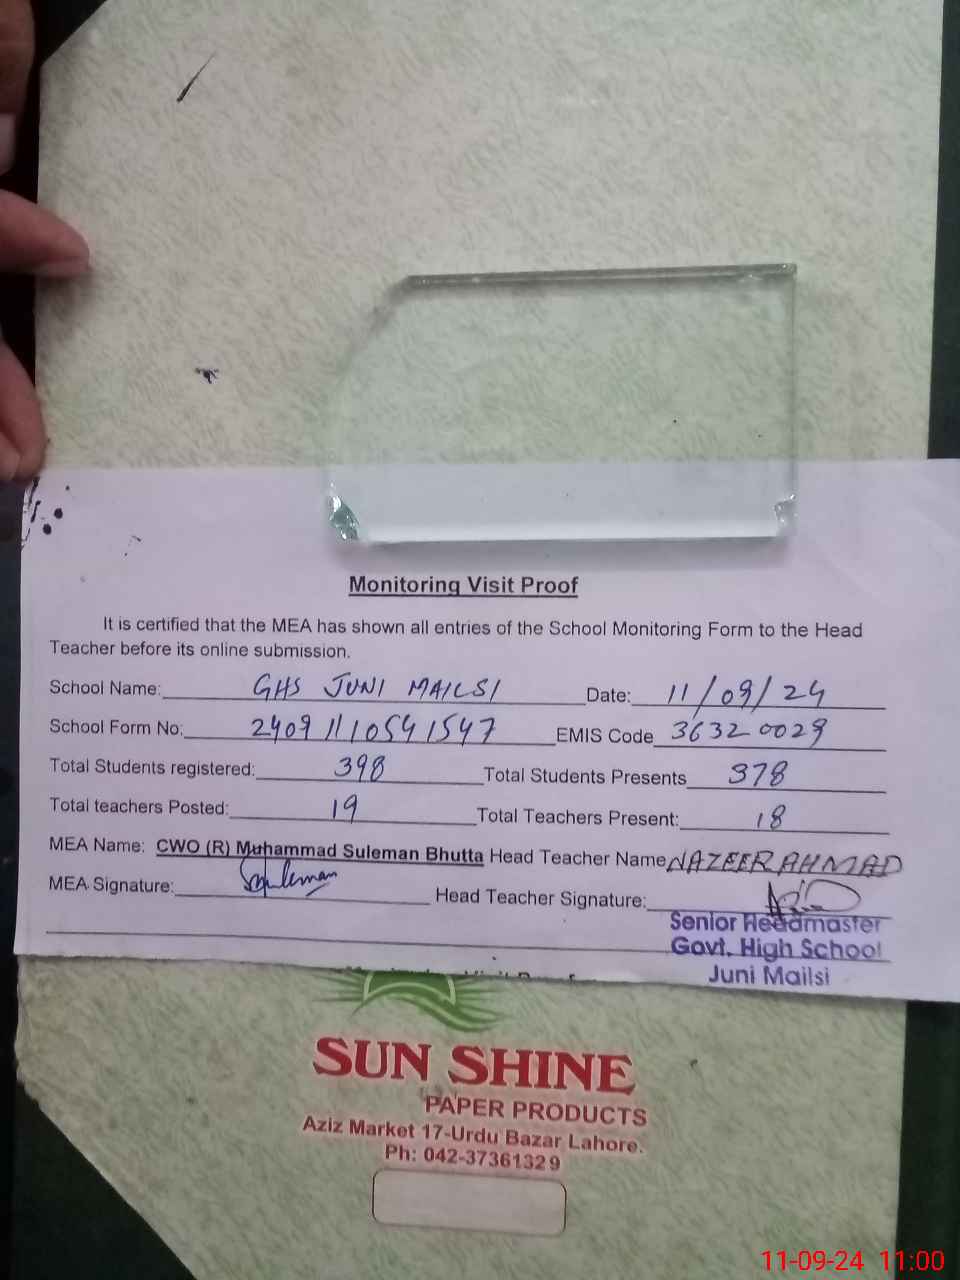 Monitoring Visit Proof
It is certified that the MEA has shown all entries of the School Monitoring Form to the Head
Teacher before its online submission.
School Name: GHS JUNI MAILSI Date: 11/09/24
School Form No: 24091110541547 EMIS Code 36320029
Total Students registered: 398 Total Students Presents 378
Total teachers Posted: 19 Total Teachers Present: 18
MEA Name: CWO (R) Muhammad Suleman Bhutta Head Teacher Name NAZEER AHMAD
MEA Signature: Suleman Head Teacher Signature:
Senior Headmaster
Govt. High School
Juni Mailsi
SUN SHINE
PAPER PRODUCTS
Aziz Market 17-Urdu Bazar Lahore.
Ph: 042-37361329
11-09-24 11:00